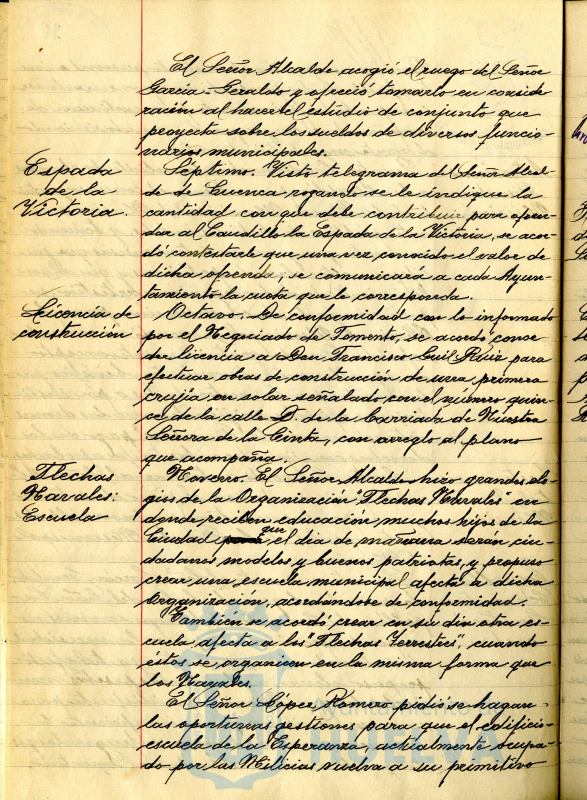 El Señor Alcalde acogió el ruego del Señor
García-Geraldo y ofreció tomarlo en conside-
ración al hacer el estudio de conjunto que
proyecta sobre los sueldos de diversos funcio-
narios municipales.
Espada
de la
Victoria.
Séptimo. Visto telegrama del Señor Alcal-
de de Cuenca rogando se le indique la
cantidad con que debe contribuir para ofren-
dar al Caudillo la Espada de la Victoria, se acor-
dó contestarle que una vez conocido el valor de
dicha ofrenda, se comunicará a cada Ayun-
tamiento la cuota que le corresponda.
Licencia de
construcción
Octavo. De conformidad con lo informado
por el Negociado de Fomento, se acordó conce-
der licencia a Don Francisco Guil Ruiz para
efectuar obras de construcción de una primera
crujía en solar señalado con el número quin-
ce de la calle D. de la barriada de Nuestra
Señora de la Cinta, con arreglo al plano
que acompaña.
Flechas
Navales:
Escuela
Noveno. El Señor Alcalde hizo grandes elo-
gios de la Organización "Flechas Navales" en
donde reciben educación muchos hijos de la
Ciudad que el día de mañana serán ciu-
dadanos modelos y buenos patriotas, y propuso
crear una escuela municipal afecta a dicha
Organización, acordándose de conformidad.
También se acordó crear en su día otra es-
cuela afecta a los "Flechas Terrestres", cuando
éstos se organicen en la misma forma que
los Navales.
El Señor López Romero pidió se hagan
las oportunas gestiones para que el edificio-
escuela de la Esperanza, actualmente ocupa-
do por las Milicias vuelva a su primitivo